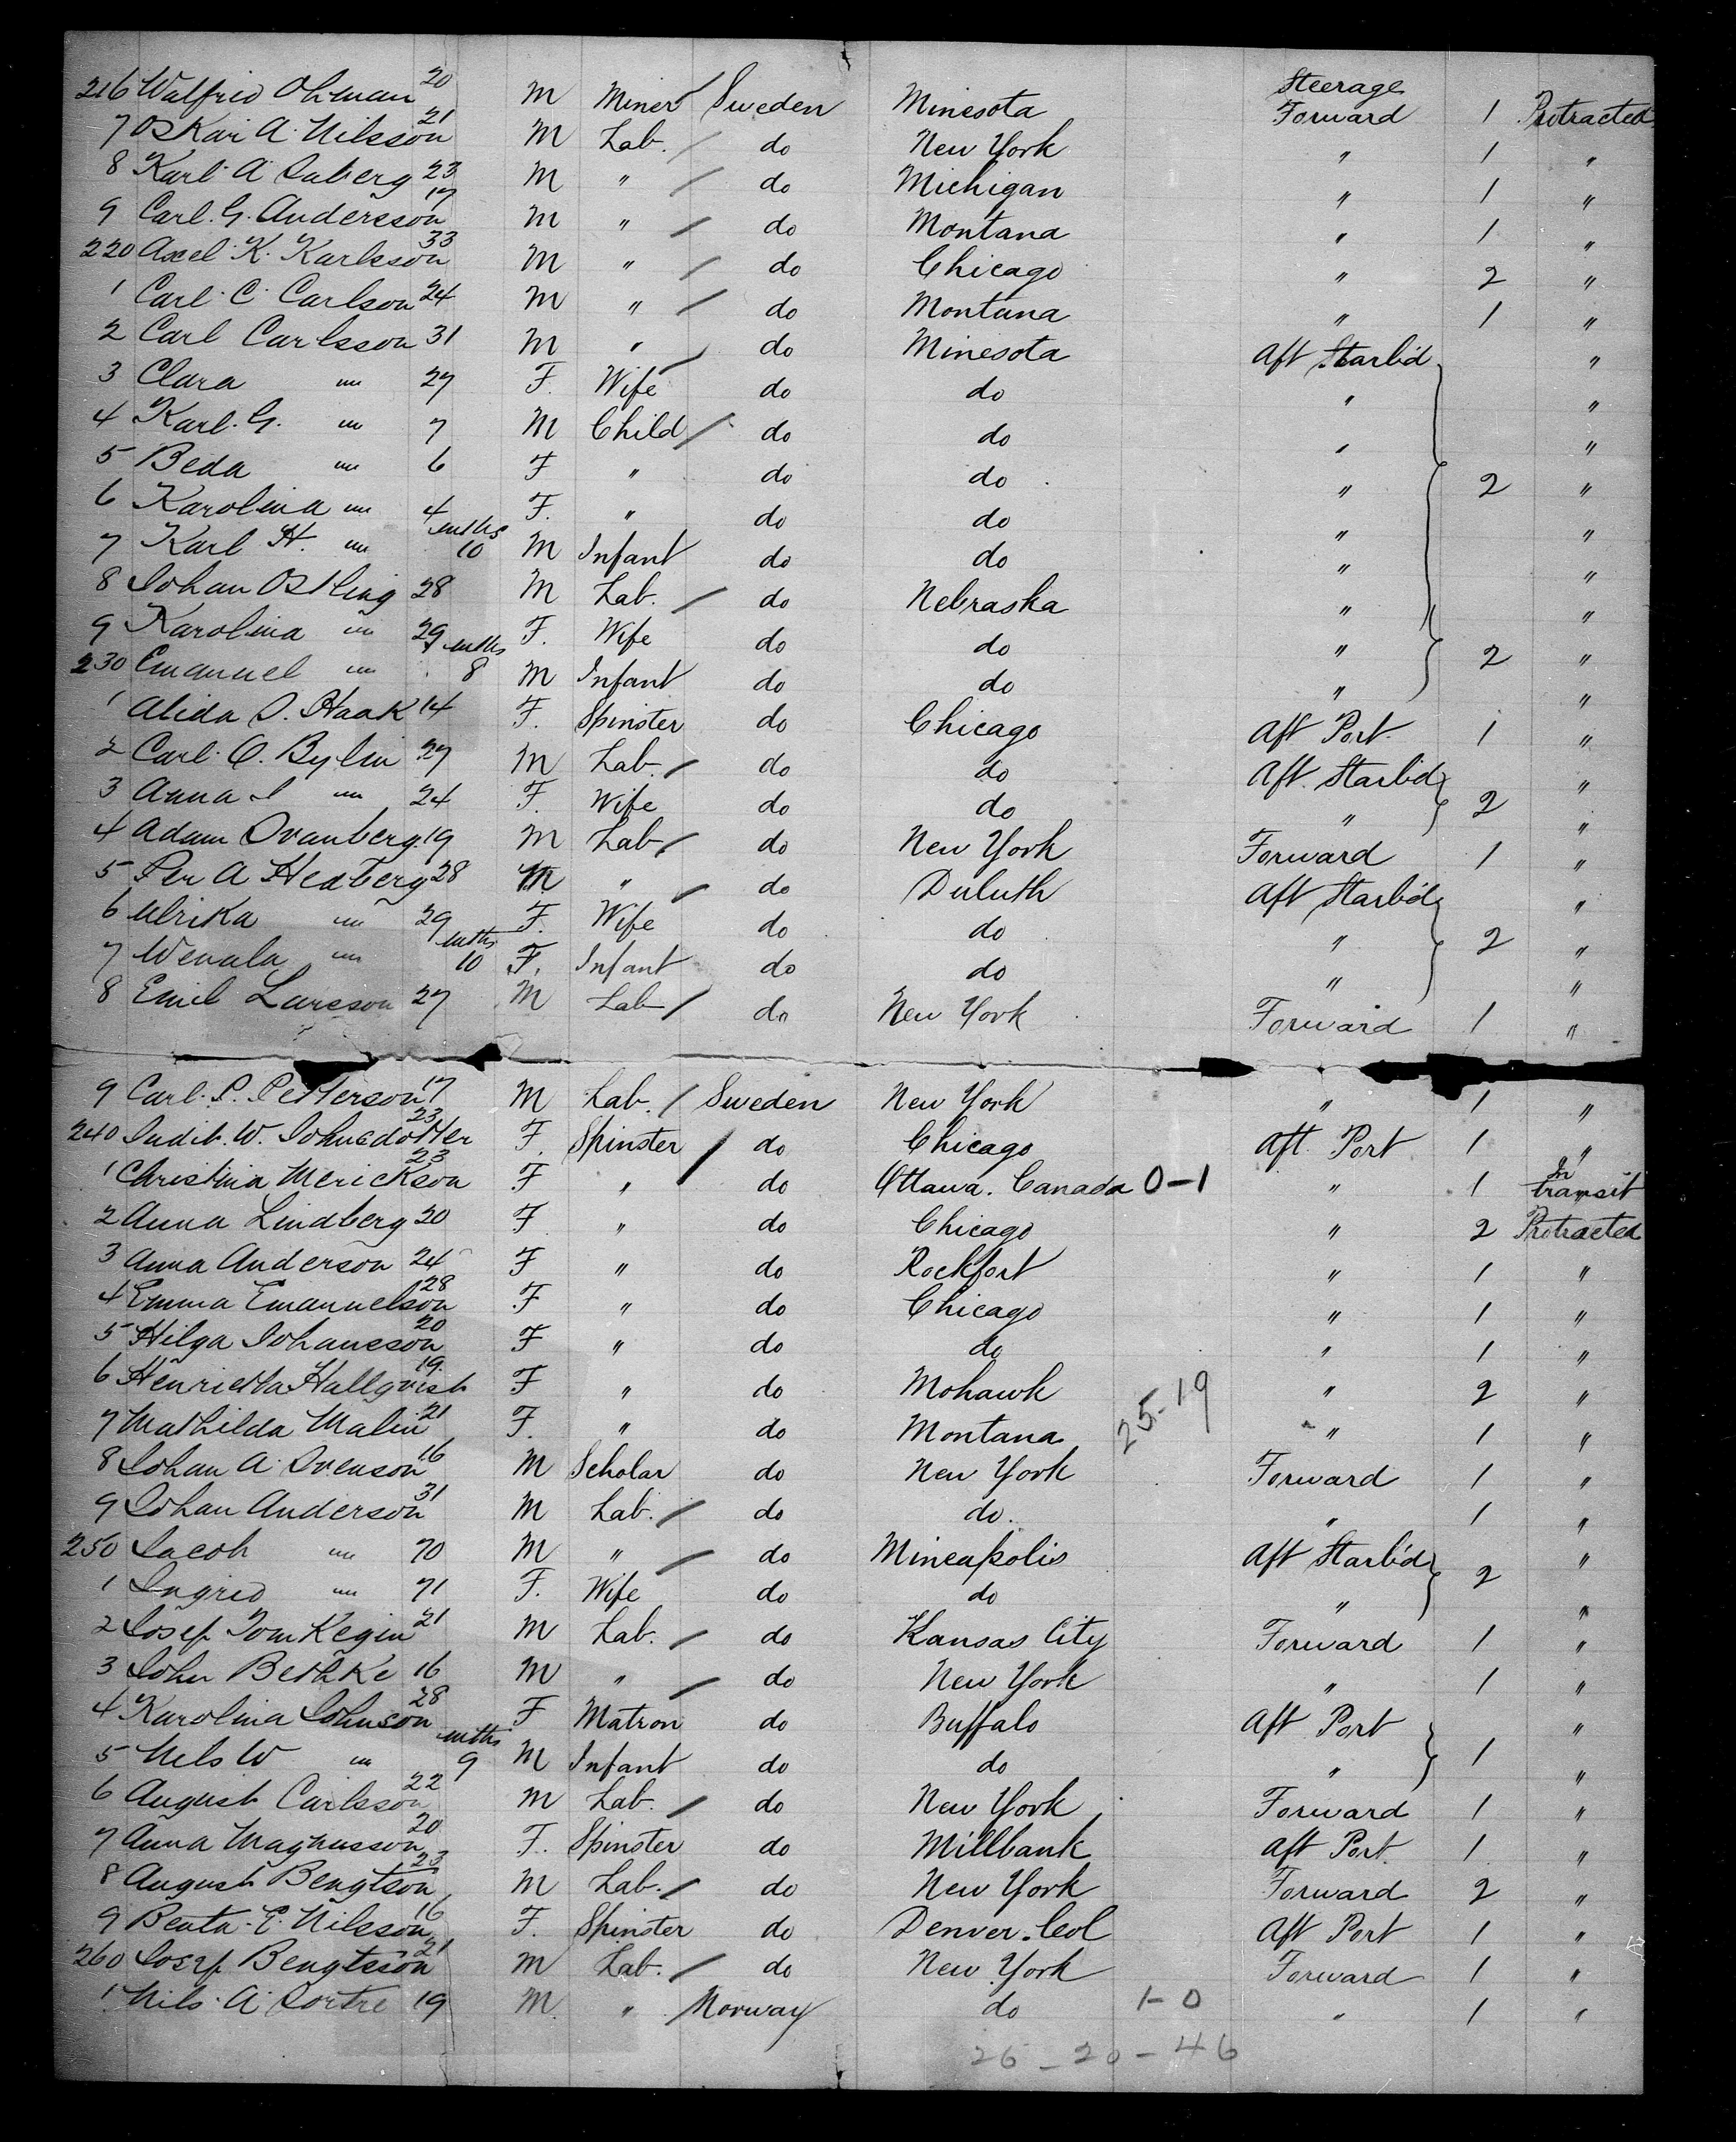 Steerage
216 Walfrid Ohman 20 M Miner / Sweden Minesota Forward 1 Protracted
7 Oskar A. Nilsson 21 M Lab. / do New York " 1 "
8 Karl A 23 M " / do Michigan " 1 "
9 Carl. G. Andersson 17 M " / do Montana " 1 "
220 Axel K. Karlsson 33 M " / do Chicago " 2 "
1 Carl C. Carlson 24 M " / do Montana " 1 "
2 Carl Carlsson 31 M " / do Minesota Aft Starb'd "
3 Clara " 27 F. Wife do do " "
4 Karl. G. " 7 M Child / do do " "
5 Beda " 6 F " do do " 2 "
6 Karolina " 4 F. " do do " "
7 Karl H. " mths 10 M Infant do do " "
8 Johan Ostling 28 M Lab. / do Nebraska " "
9 Karolina " 29 F. Wife do do " 2 "
230 Emanuel " mths 8 M Infant do do " "
1 Alida S. Haak 14 F. Spinster do Chicago Aft Port 1 "
2 Carl. O. Bylin 27 M Lab. / do do Aft Starb'd "
3 Anna " 24 F. Wife do do " 2 "
4 Adam Svanberg 19 M Lab / do New York Forward 1 "
5 Per A Hedberg 28 M " / do Duluth Aft Starb'd "
6 Ulrika " 29 F. Wife do do " 2 "
7 " mths 10 F. Infant do do " "
8 Emil Larsson 27 M Lab / do New York Forward 1 "
9 Carl. P. Petterson 17 M Lab. / Sweden New York " 1 "
240 Judit. W. Johnsdotter 23 F. Spinster / do Chicago Aft Port 1 "
1 Christina Merickson 23 F " do Ottawa. Canada 0-1 " 1 In transit
2 Anna Lindberg 20 F " do Chicago " 2 Protracted
3 Anna Anderson 24 F " do Rockfort " 1 "
4 Emma Emanuelson 28 F " do Chicago " 1 "
5 Hilga Johansson 20 F " do do " 1 "
6 Henrietta Hallqvist 19 F " do Mohawk " 2 "
25-19
7 Mathilda Malin 21 F. " do Montana " 1 "
8 Johan A. Svenson 16 M Scholar do New York Forward 1 "
9 Johan Anderson 31 M Lab. / do do. " 1 "
250 Jacob " 70 M " / do Mineapolis Aft Starb'd "
1 Ingrid " 71 F. Wife do do " 2 "
2 Josef Tomkegin 21 M Lab. / do Kansas City Forward 1 "
3 John Bethke 16 M " / do New York " 1 "
4 Karolina Johnson 28 F Matron do Buffalo Aft Port "
5 Nels W " mths 9 M Infant do do " 1 "
6 August Carlsson 22 M Lab. / do New York Forward 1 "
7 Anna Magnusson 20 F. Spinster do Millbank Aft Port 1 "
8 August Bengtson 23 M Lab. / do New York Forward 2 "
9 Beata. E. Nilsson 16 F. Spinster do Denver. Col Aft Port 1 "
260 Josef Bengtsson 21 M Lab. / do New York Forward 1 "
1 Nils. A. 19 M. " Norway do 1-0 " 1 "
26-20-46